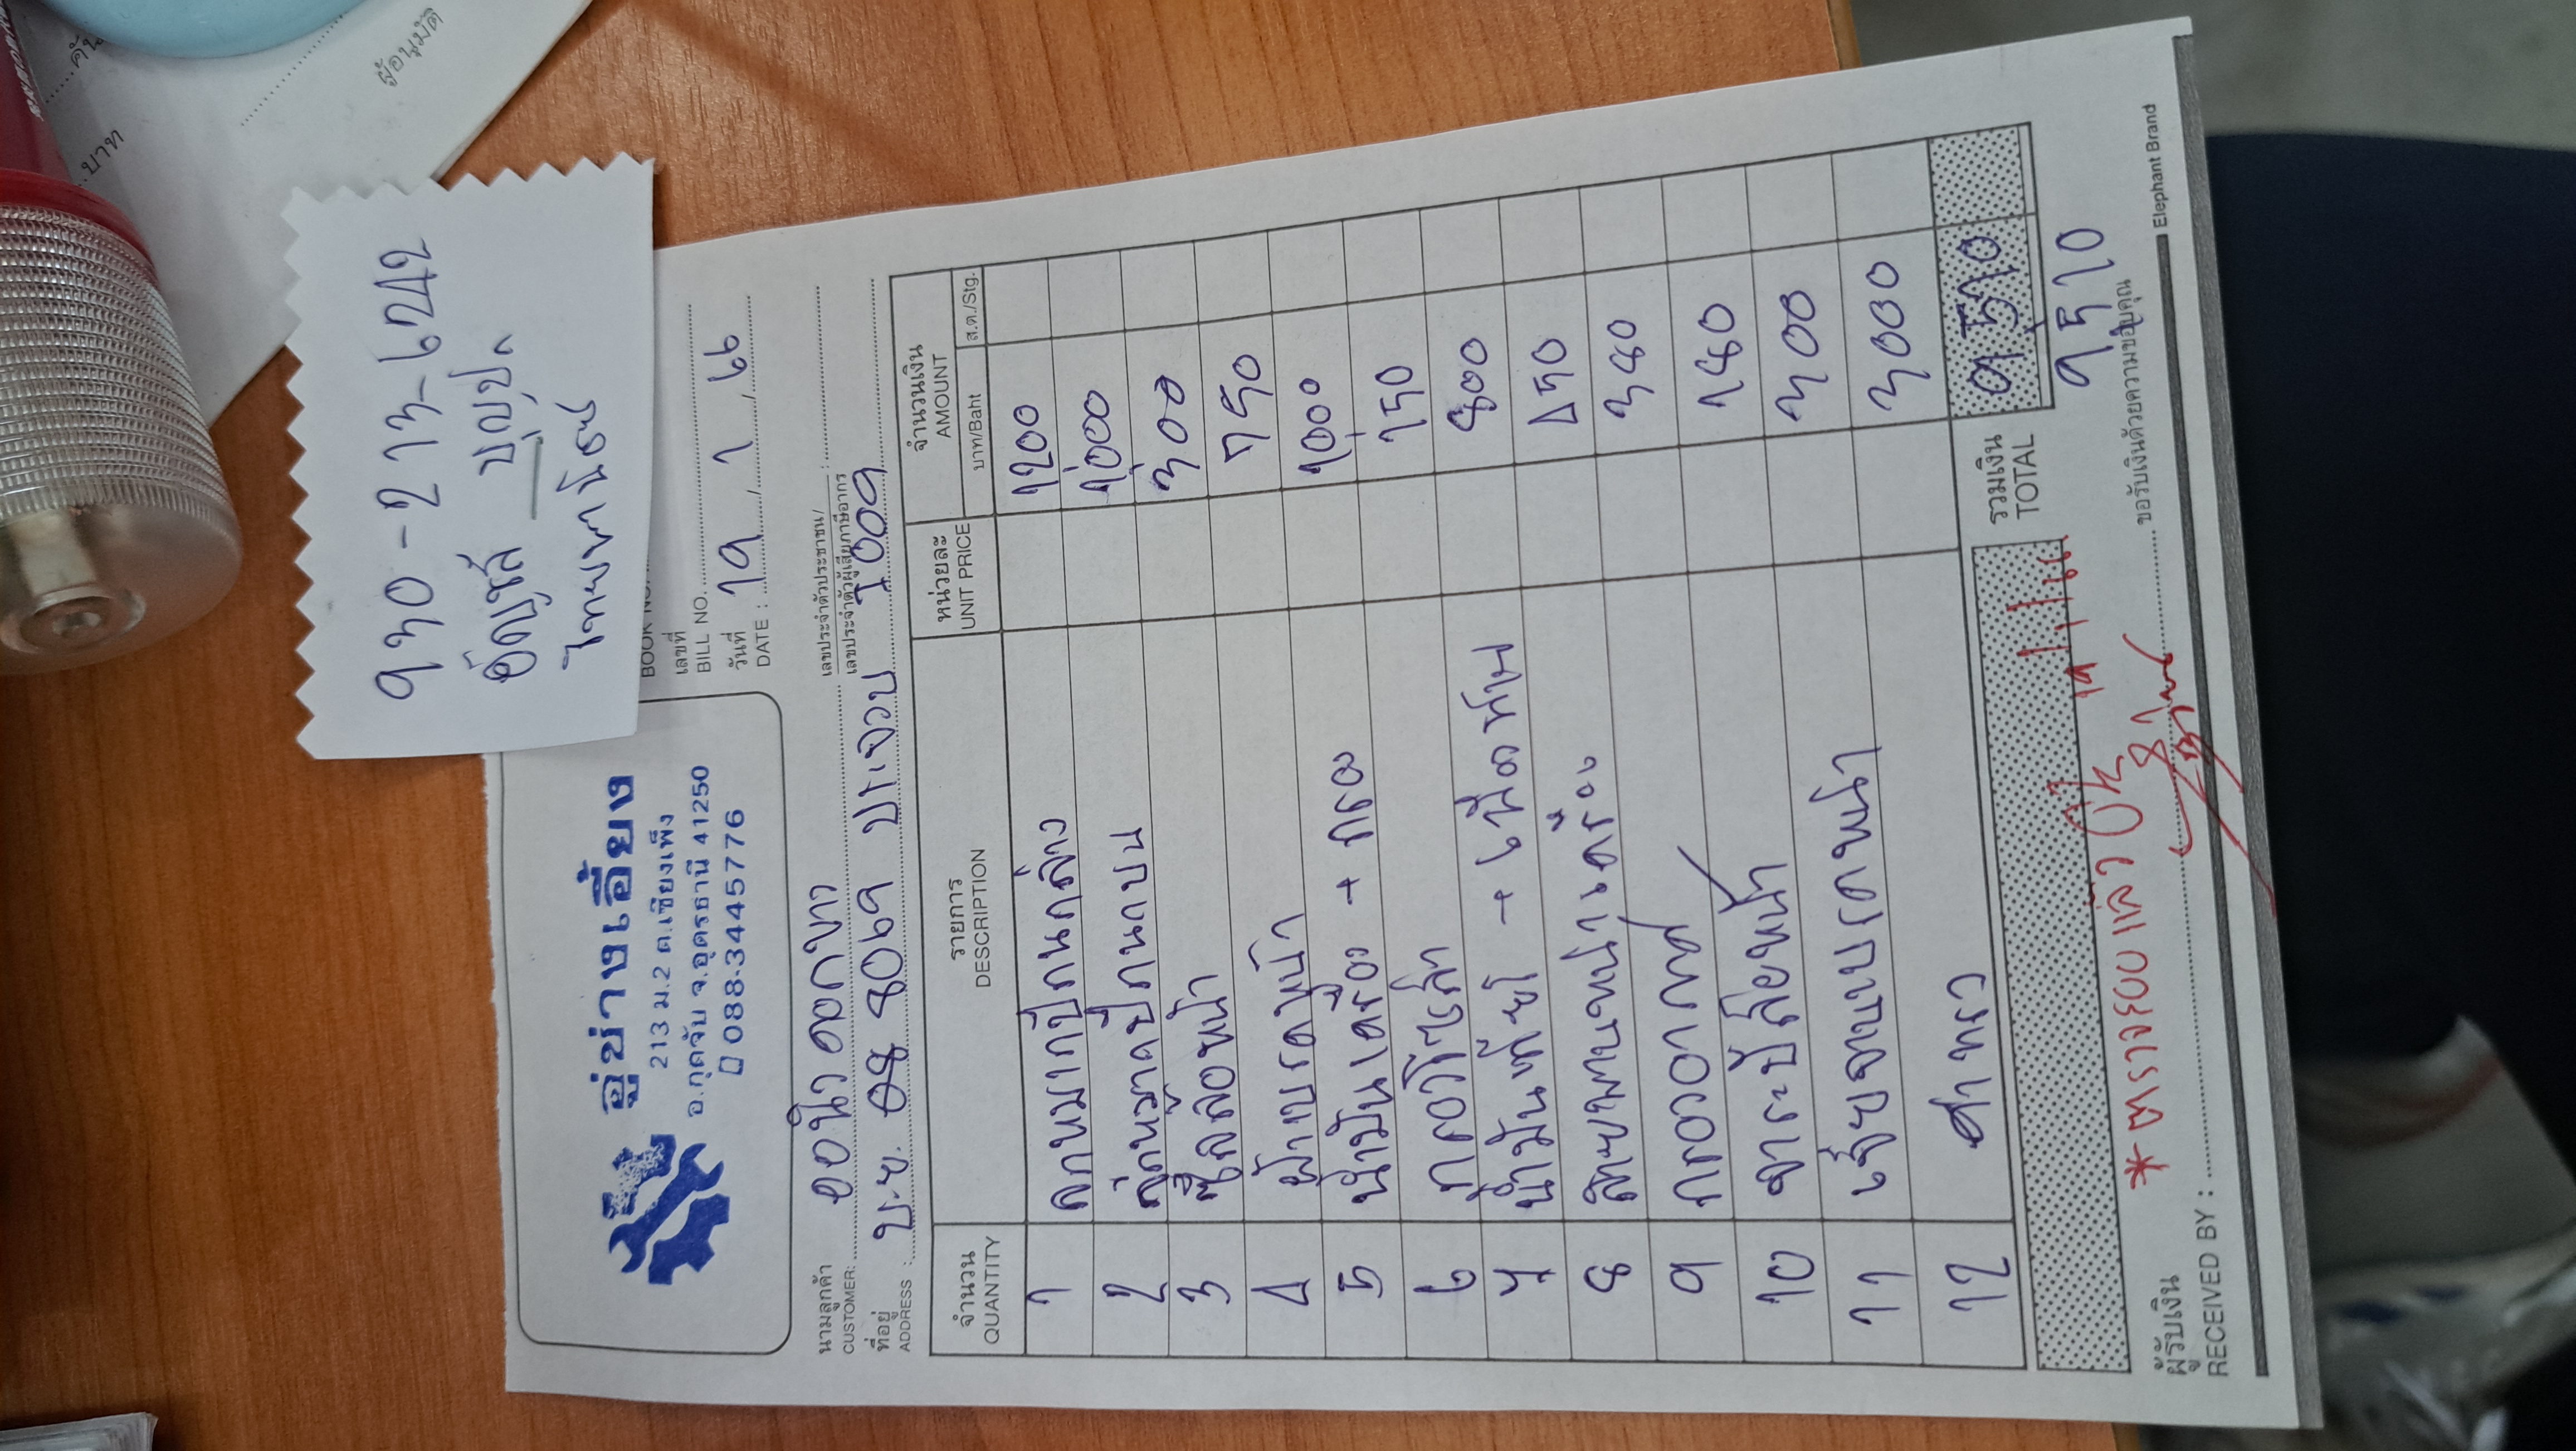 930-213-6242
อัคญสิ บุญปุ
ไทยพาณิชย์
อู่ช่างเอี้ยง
213 ม.2 ต.เชียงเพ็ง
อ.กุดจับ จ.อุดรธานี 41250
088-3445776
เลขที่
BILL NO.
วันที่
DATE : 19 / 1 / 66
นามลูกค้า
CUSTOMER:
เลขประจำตัวประชาชน/
เลขประจำตัวผู้เสียภาษีอากร :
ที่อยู่
ADDRESS : บ.ย. 08 8069 ประจวบ 1009
จำนวน
QUANTITY
รายการ
DESCRIPTION
หน่วยละ
UNIT PRICE
จำนวนเงิน
AMOUNT
บาท/Baht ส.ต./Stg.
1 ลูกหมากปีกนกล่าง 1200
2 ลูกหมากปีกนกบน 1000
3 ซีลล้อหน้า 300
4 ผ้าเบรคหน้า 750
5 น้ำมันเครื่อง + กรอง 1000
6 กรองโซล่า 150
7 น้ำมันเกียร์ + เฟืองท้าย 800
8 สายพานหน้าเครื่อง 450
9 กรองอากาศ 380
10 จาระบีล้อหน้า 180
11 เจียจานเบรคหน้า 300
12 ค่าแรง 3000
รวมเงิน
TOTAL
9,510
9,510
* ตรวจรอบแล้ว
19/1/66
ผู้รับเงิน
RECEIVED BY :
ขอรับเงินด้วยความขอบคุณ
Elephant Brand
ผู้อนุมัติ
บาท